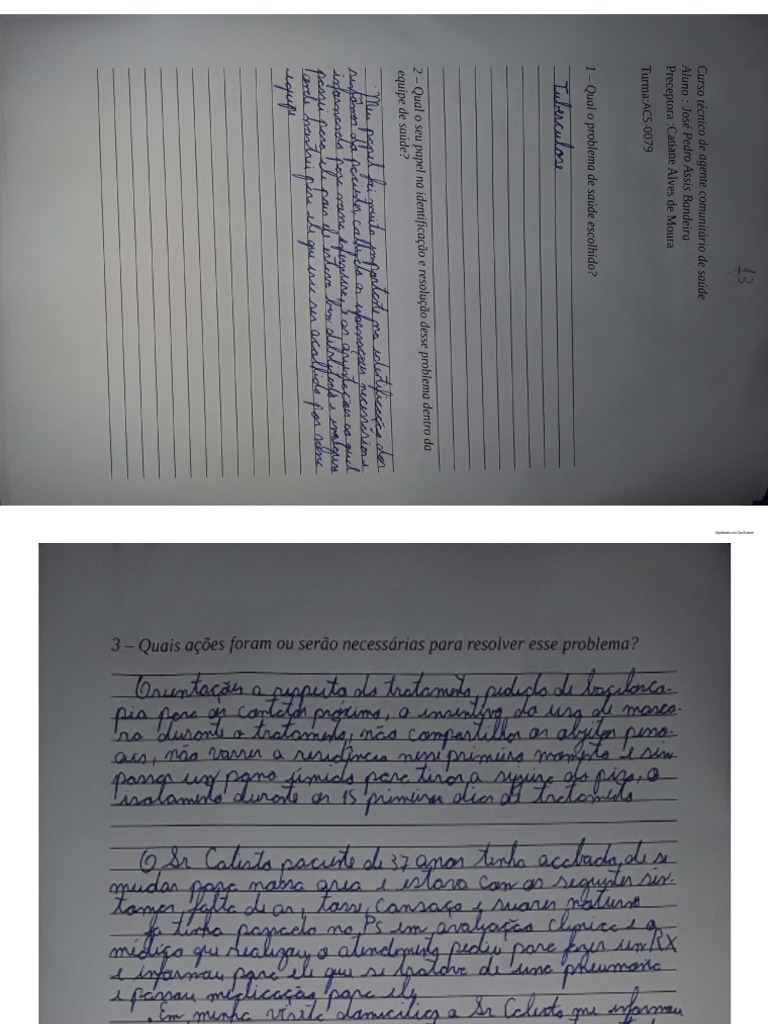 13
Curso técnico de agente comunitário de saúde
Aluno : José Pedro Assis Bandeira
Preceptora :Catiane Alves de Moura
Turma:ACS-0079
1 – Qual o problema de saúde escolhido?
Tuberculose
2 – Qual o seu papel na identificação e resolução desse problema dentro da
equipe de saúde?
Meu papel foi muito importante na identificação dos
sintomas do paciente, as informações necessárias e
informando para enfermeira e as orientações ao qual
passei para ele pois ele estava bem debilitado e
para ele que iria ser acolhido por nossa
equipe
Digitalizado com CamScanner
3 – Quais ações foram ou serão necessárias para resolver esse problema?
Orientações a respeito do tratamento, pedido de baciloscо-
pia para os contatos próximo, o insentivo do uso de masca-
ra durante o tratamento, não compartilhar os objetos peso-
ais, não varrer a residência nesse primeiro momento e sim
passar um pano úmido para tirar a sujeira do piso, o
isolamento durante os 15 primeiros dias de tratamento
O Sr Calisto paciente de 37 anos tinha acabado de se
mudar para nossa area e estava com os seguintes sin-
tomas falta de ar, tosse, cansaço e suores noturno
Ja tinha passado no PS em avaliação clinica e o
médico que realizou o atendimento pediu para fazer um RX
e informou para ele que se tratava de uma pneumonia
e passou medicação para ele
. Em minha visita domiciliar o Sr Calisto me informou